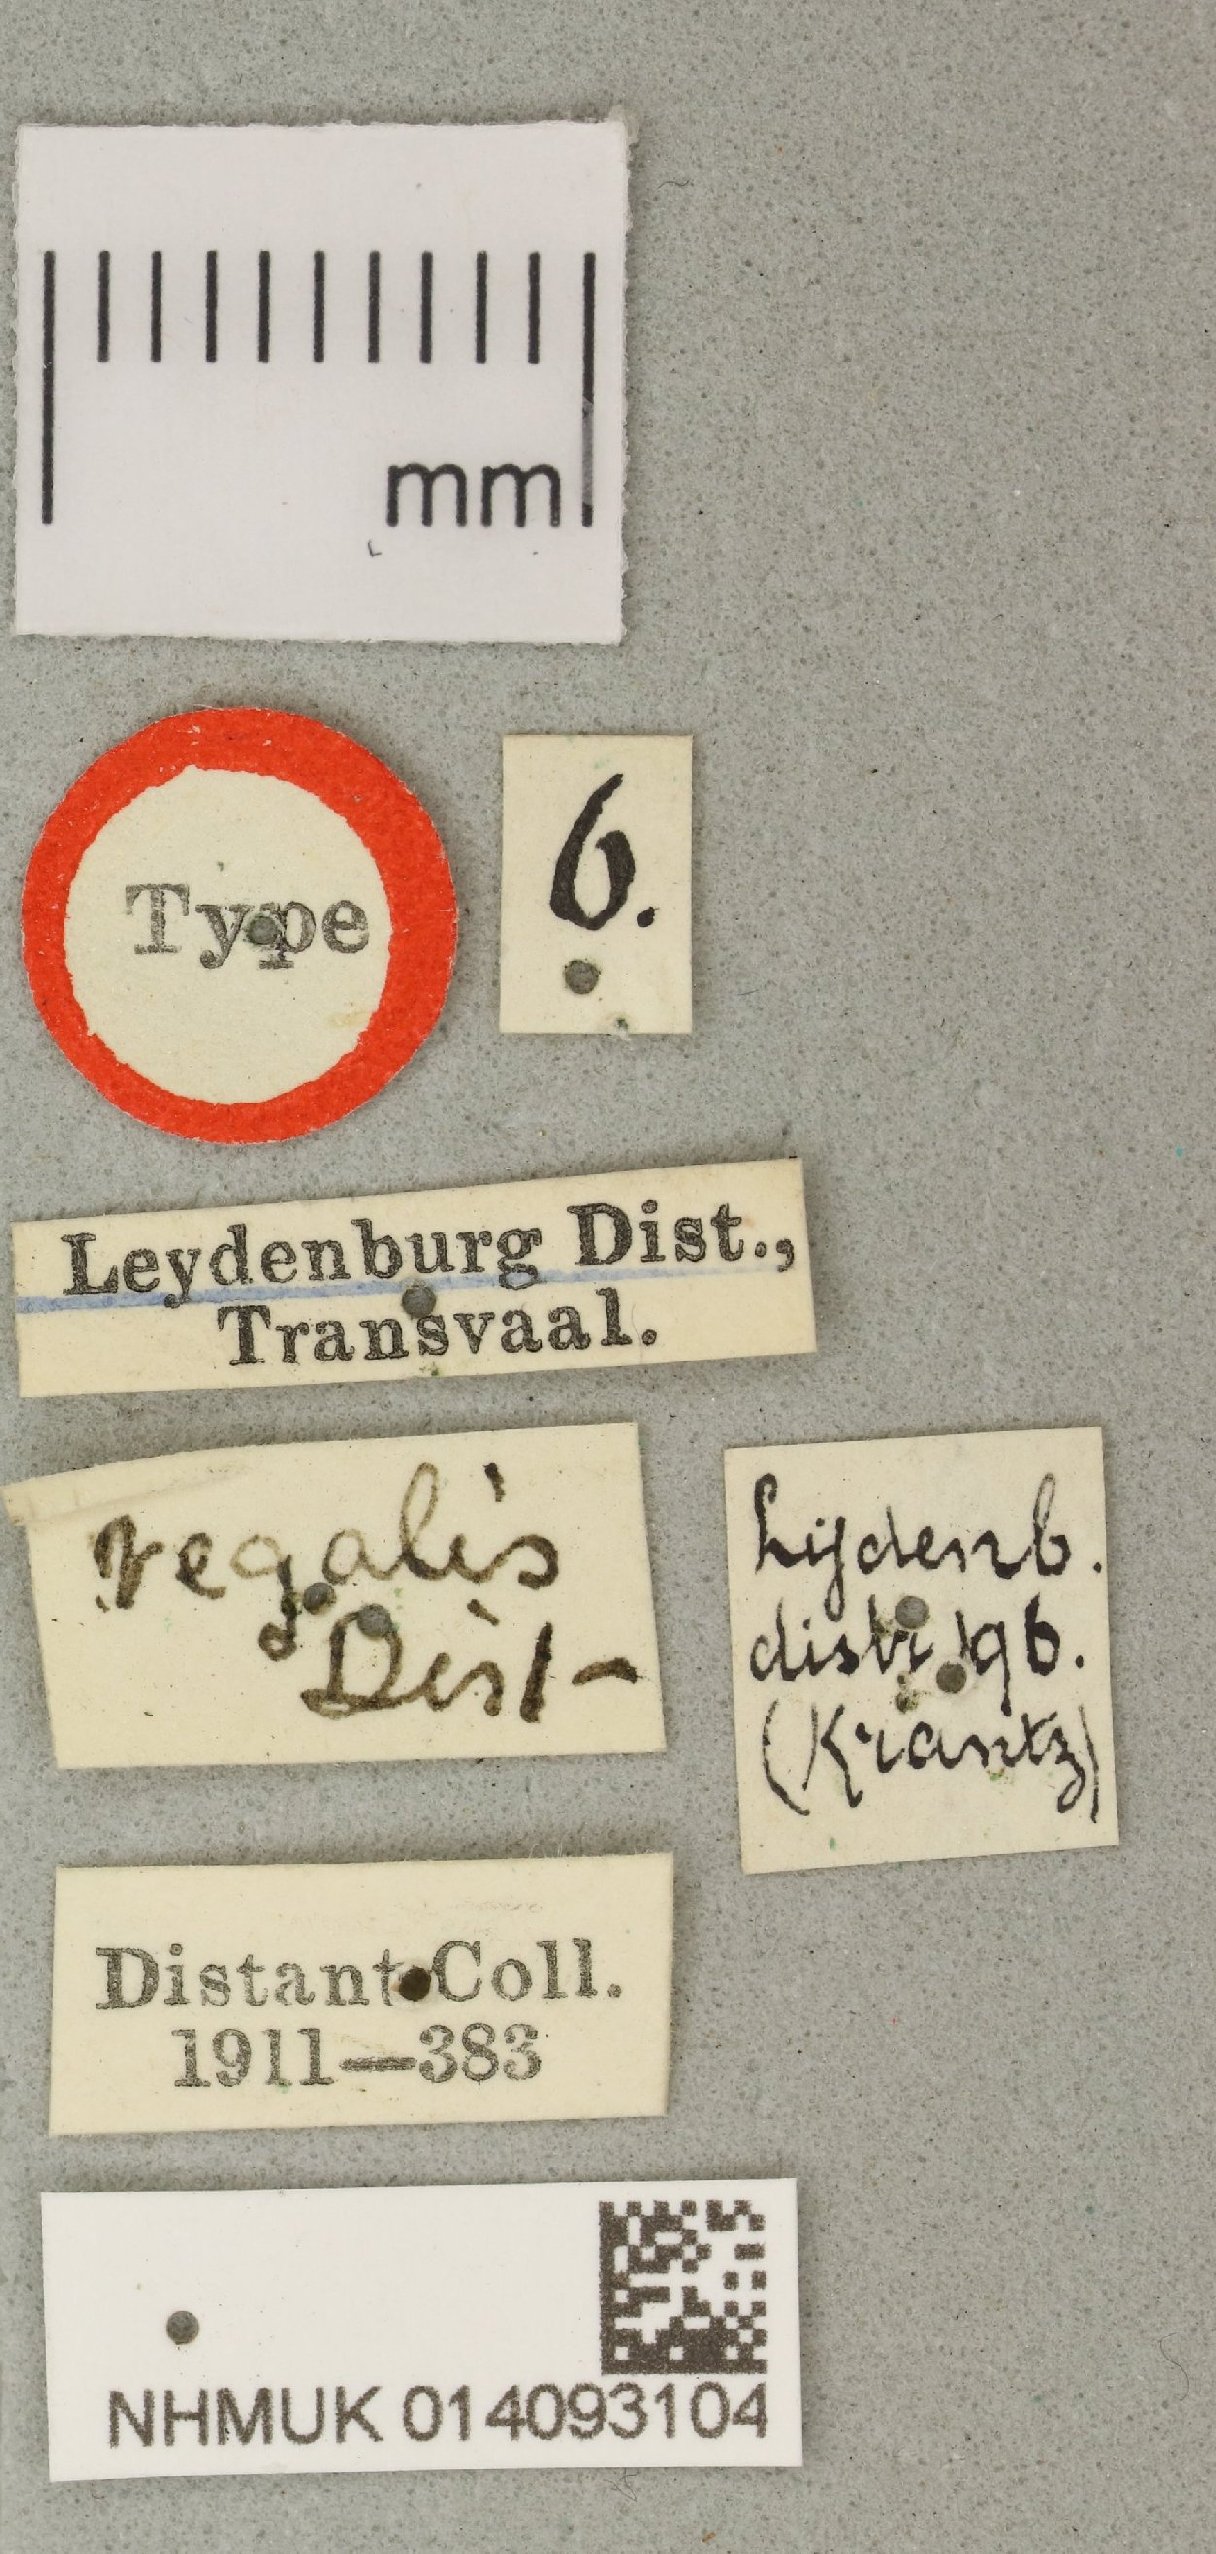 mm
Type
6.
Leydenburg Dist.,
Transvaal.
regalis
Dist-
Lijdenb.
distr 96.
(Krantz)
Distant Coll.
1911—383
NHMUK 014093104